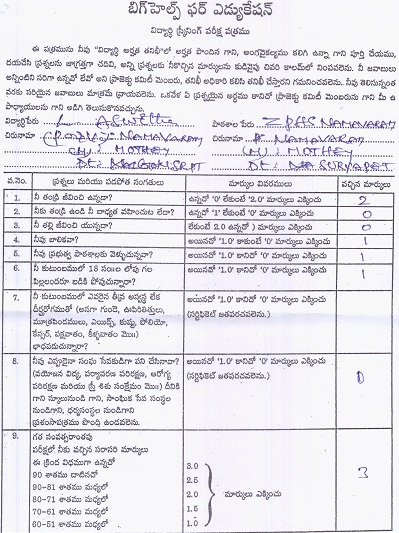 బిగ్‌హెల్ప్ ఫర్ ఎడ్యుకేషన్
విద్యార్థి స్క్రీనింగ్ పరీక్ష పత్రము
ఈ పత్రమును నీవు "విద్యార్థి అర్హత తనిఖీ"లో అర్హత పొందిన గాని, అంగవైకల్యము కలిగి ఉన్నా గాని పూర్తి చేయుము,
దయచేసి ప్రశ్నలను జాగ్రత్తగా చదివి, అన్ని ప్రశ్నలకు నీకొచ్చిన మార్కులను కుడివైపు చివరి కాలమ్‌లో నింపవలెను. నీ జవాబులు
అన్నింటిని సరిగా ఉన్నవో లేవో అని ప్రాజెక్టు కమిటీ మెంబరు, తనిఖీ అధికారి కలిసి తనిఖీ చేస్తారని గమనించవలెను. నీవు తెలిసినంత
వరకు సరియైన జవాబులు మాత్రమే వ్రాయవలెను. ఒకవేళ ఏ ప్రశ్నయైన అర్థము కానిచో ప్రాజెక్టు కమిటీ మెంబరును గాని మీ ఉ
పాధ్యాయులను గాని అడిగి తెలుసుకొనవచ్చును.
విద్యార్థిపేరు L. పాఠశాల పేరు ZPHS NAMAVARAM
చిరునామా (P.O)(V): NAMAVARAM చిరునామా NAMAVARAM
(M): MOTHEY (M): MOTHEY
DT: DT: SURYAPET
వ.నెం. ప్రశ్నలు మరియు పదపోత సంగతులు మార్కుల వివరములు వచ్చిన మార్కులు
1. నీ తండ్రి జీవించి ఉన్నాడా? ఉన్నచో '0' లేకుంటే '2.0' మార్కులు ఎక్కించు 2
2. నీకు తండ్రి ఉండి నీ బాధ్యత వహించుట లేదా? ఉన్నచో '1' లేకుంటే '0' మార్కులు ఎక్కించు 0
3. నీ తల్లి జీవించి యున్నదా? లేకుంటే 2.0 ఉన్నచో 0 మార్కులు ఎక్కించు 0
4. నీవు బాలికవా? అయినచో '1.0' కాకుంటే '0' మార్కులు ఎక్కించు 1
5. నీవు ప్రభుత్వ పాఠశాలకు వెళ్ళుచున్నవా? అయినచో '1.0' కానిచో '0' మార్కులు ఎక్కించు 1
6. నీ కుటుంబములో 18 సం॥ల లోపు గల అయినచో '1.0' కానిచో '0' మార్కులు ఎక్కించు 1
పిల్లలందరూ బడికి పోవుచున్నారా?
7. నీ కుటుంబములో ఎవరైన తీవ్ర అస్వస్థ లేక అయినచో '1.0' కానిచో '0' మార్కులు ఎక్కించు
దీర్ఘరోగముతో (అనగా గుండె, ఊపిరితిత్తులు, (సర్టిఫికెట్ జతపరచవలెను.)
మూత్రపిండములు, ఎయిడ్స్, కుష్ఠు, పోలియో,
కేన్సర్, పక్షవాతం, కీళ్ళవాతం మొ॥)
బాధపడుచున్నారా?
8. నీవు ఎప్పుడైనా సంఘ సేవకుడిగా పని చేసినావా? అయినచో '1.0' కానిచో '0' మార్కులు ఎక్కించు 0
(వయోజన విద్య, పర్యావరణ పరిరక్షణ, ఆరోగ్య (సర్టిఫికెట్ జతపరచవలెను.)
పరిరక్షణ మరియు స్త్రీ శిశు సంక్షేమం మొ॥) దీనికి
గాని స్కూలునుండి గాని, సాంఘిక సేవ సంస్థల
నుండిగాని, ధర్మసంస్థల నుండిగాని
ప్రశంసాపత్రము పొంది ఉండవలెను.
9. గత సంవత్సరాంతపు
పరీక్షలో నీకు వచ్చిన సరాసరి మార్కులు
ఈ క్రింద విధముగా ఉన్నచో
90 శాతము దాటినచో 3.0 3
90-81 శాతము మధ్యలో 2.5
80-71 శాతము మధ్యలో 2.0 మార్కులు ఎక్కించు
70-61 శాతము మధ్యలో 1.5
60-51 శాతము మధ్యలో 1.0